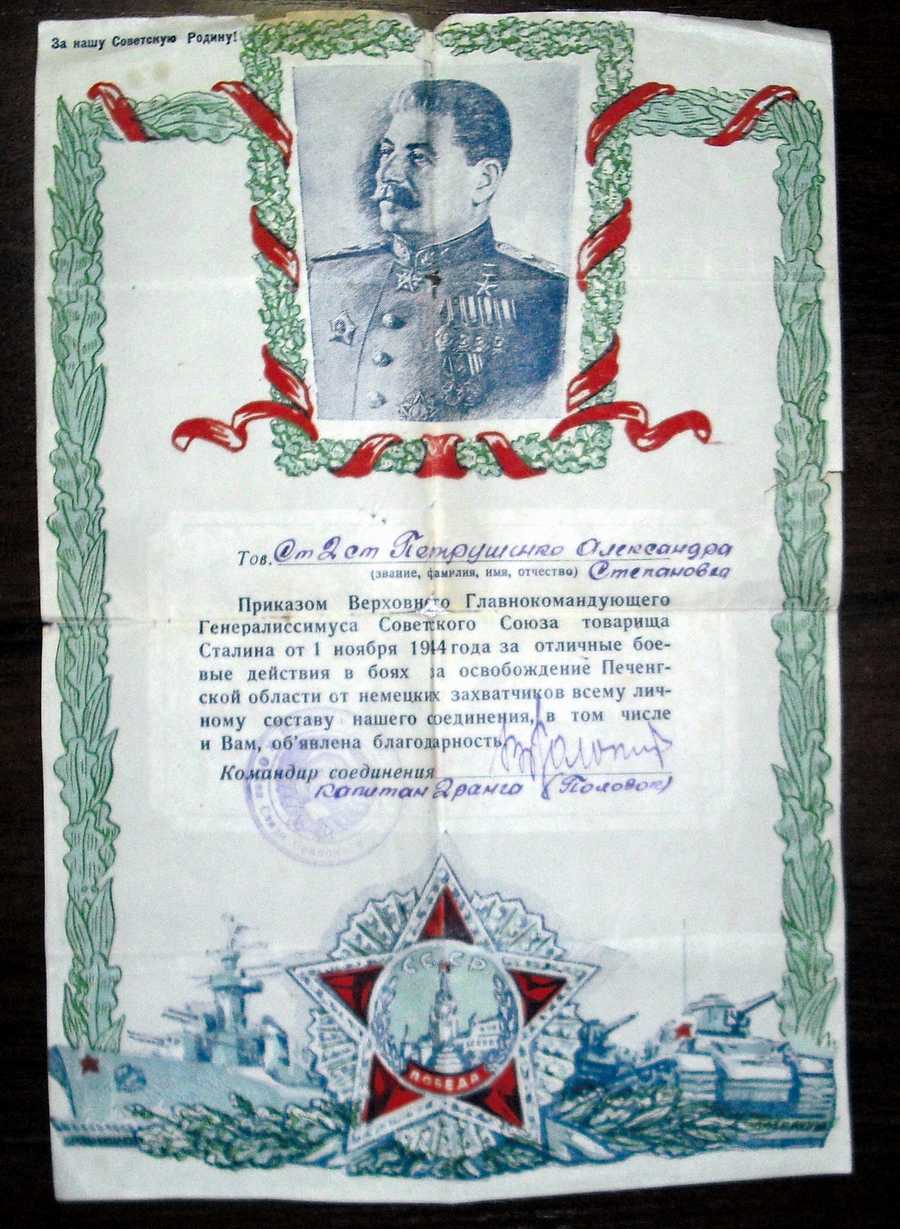 За нашу Советскую Родину!
Тов. Ст 2 ст Петрушенко Александра
(звание, фамилия, имя, отчество) Степановва
Приказом Верховного Главнокомандующего
Генералиссимуса Советского Союза товарища
Сталина от 1 ноября 1944 года за отличные бое-
вые действия в боях за освобождение Печенг-
ской области от немецких захватчиков всему лич-
ному составу нашего соединения, в том числе
и Вам, об'явлена благодарность
Командир соединения
капитан 2 ранга
СССР
ПОБЕДА